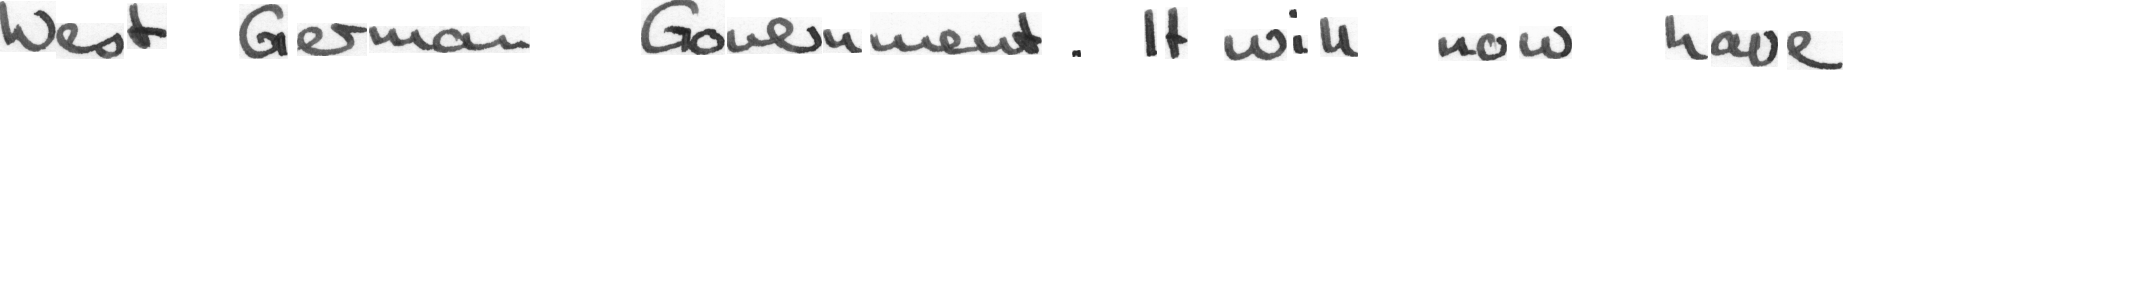 West German Government. It will now have